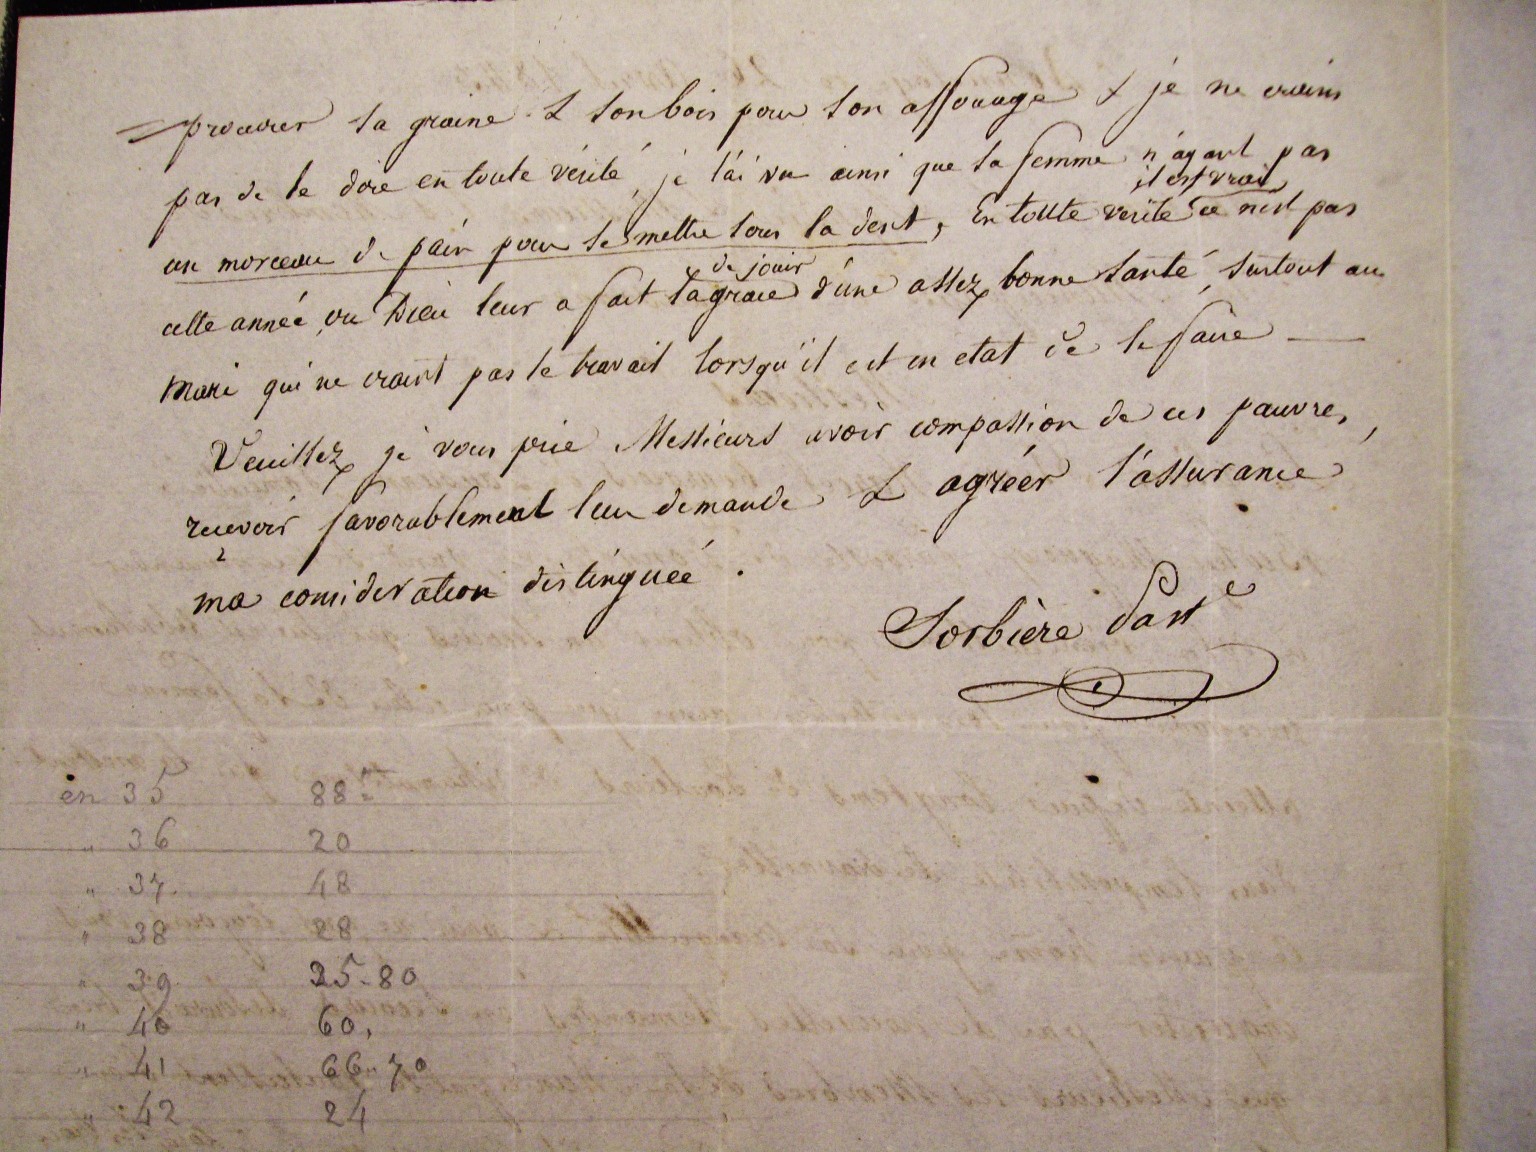 procurer sa graine & son bois pour son affouage & je ne crains
pas de le dire en toute vérité, je l'ai vu ainsi que sa femme n'ayant pas
un morceau de pain pour se mettre sous la dent, En toute verité il est vrai ce n'est pas
cette année, ou Dieu leur a fait la grace de jouir d'une assez bonne santé, surtout au
mari qui ne craint pas le travail lorsqu'il est en etat de le faire —
Veuillez, je vous prie Messieurs avoir compassion de ces pauvres,
recevoir favorablement leur demande & agréer l'assurance
ma consideration distinguée.
Sorbière Past
en 35 88
" 36 20
" 37. 48
" 38 28
" 39 25-80
" 40 60,
" 41 66.. 70
" 42 24